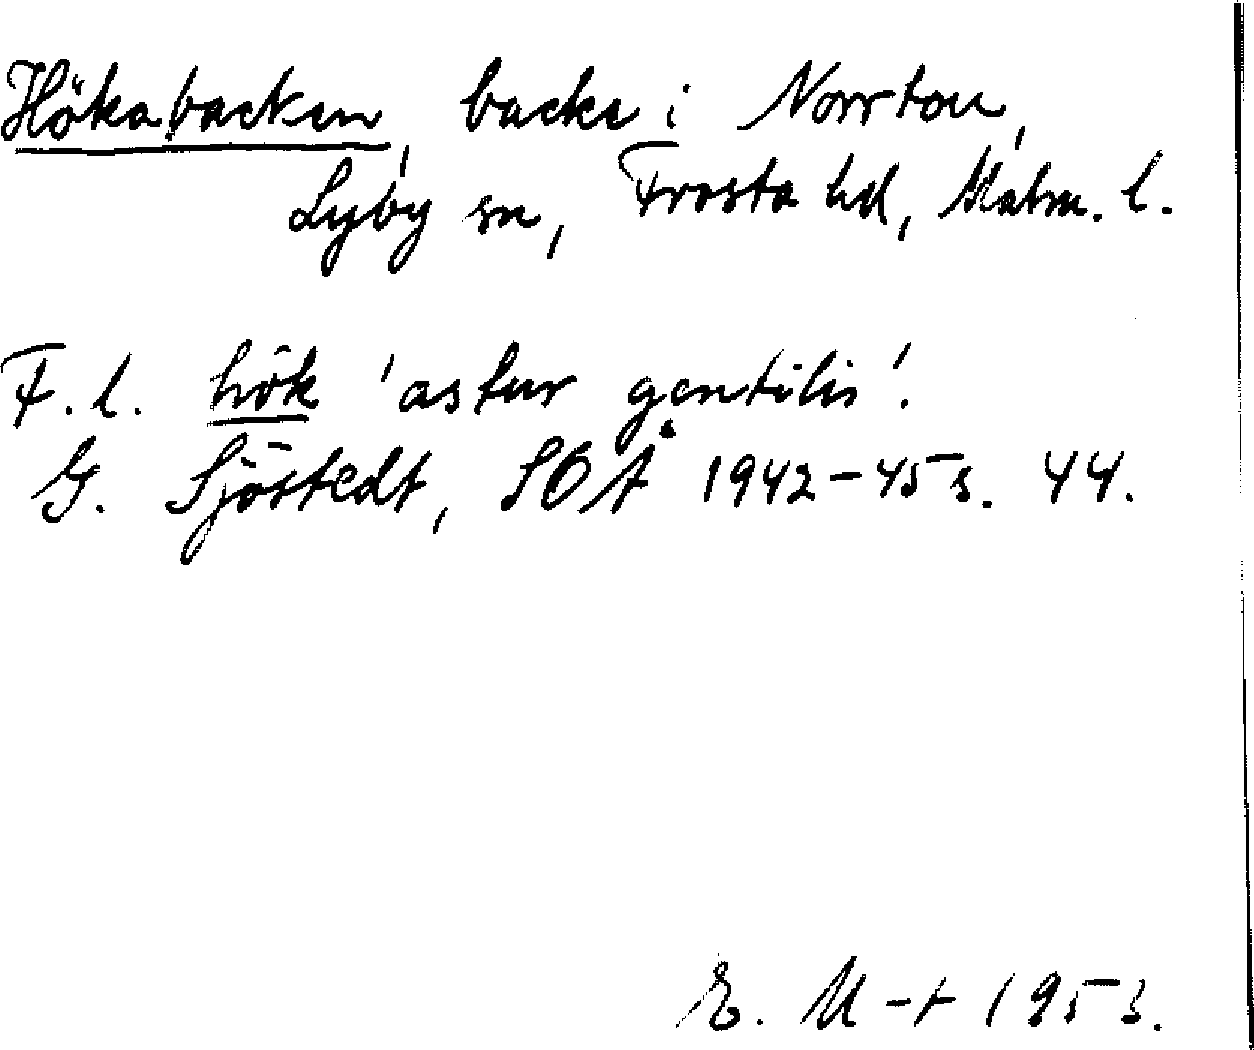 Hökabacken, backe i Norrtou,
Lyby sn, Frosta hd, Malm. l.
F. l. hök 'astur gentilis'.
G. Sjöstedt, SOÅ 1942-45 s. 44.
E. M-t 1953.